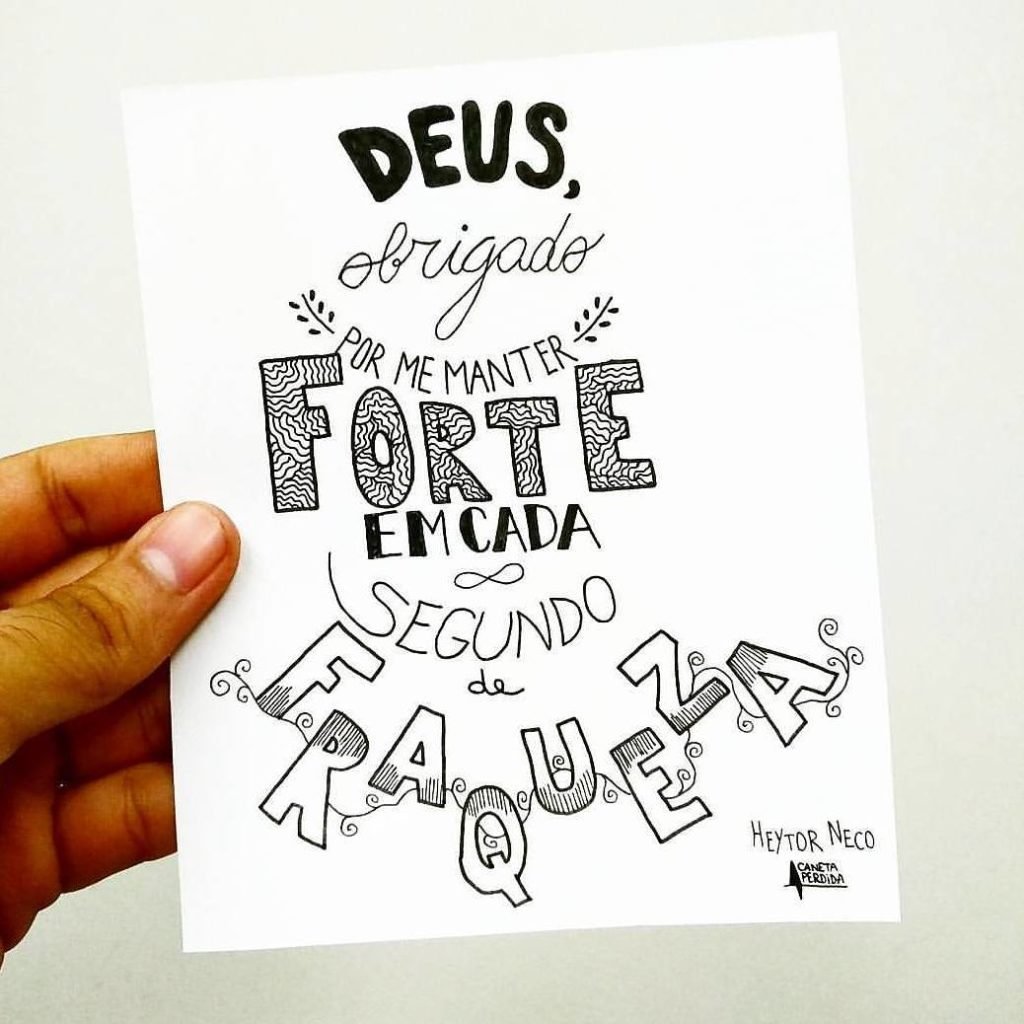 DEUS,
obrigado
POR ME MANTER
FORTE
EM CADA
SEGUNDO
de
FRAQUEZA
HEYTOR NECO
CANETA
PERDIDA